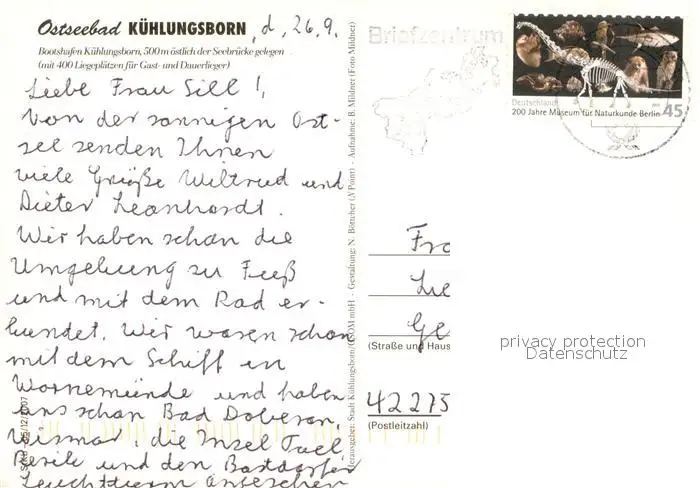 Ostseebad KÜHLUNGSBORN, d. 26.9.
Bootshafen Kühlungsborn, 500 m östlich der Seebrücke gelegen
(mit 400 Liegeplätzen für Gast- und Dauerlieger)
Liebe Frau Sill!,
Von der sonnigen Ost-
see senden Ihnen
viele Grüße Wiltrud und
Dieter Leonhardt.
Wir haben schon die
Umgebung zu Fuß
und mit dem Rad er-
kundet. Wir waren schon
mit dem Schiff in
Warnemünde und haben
uns schon Bad Doberan,
Wismar, die Insel Poel,
Rerik und den Bastdorfer
Leuchtturm angesehen
Herausgeber: Stadt Kühlungsborn/ mbH - Gestaltung: N. Böttcher (N Point) - Aufnahme: B. Mildner (Foto Mildner)
12/2007
Briefzentrum
Deutschland
200 Jahre Museum für Naturkunde Berlin
45
Fra
Lie
Ge
(Straße und Haus
42275
(Postleitzahl)
privacy protection
Datenschutz